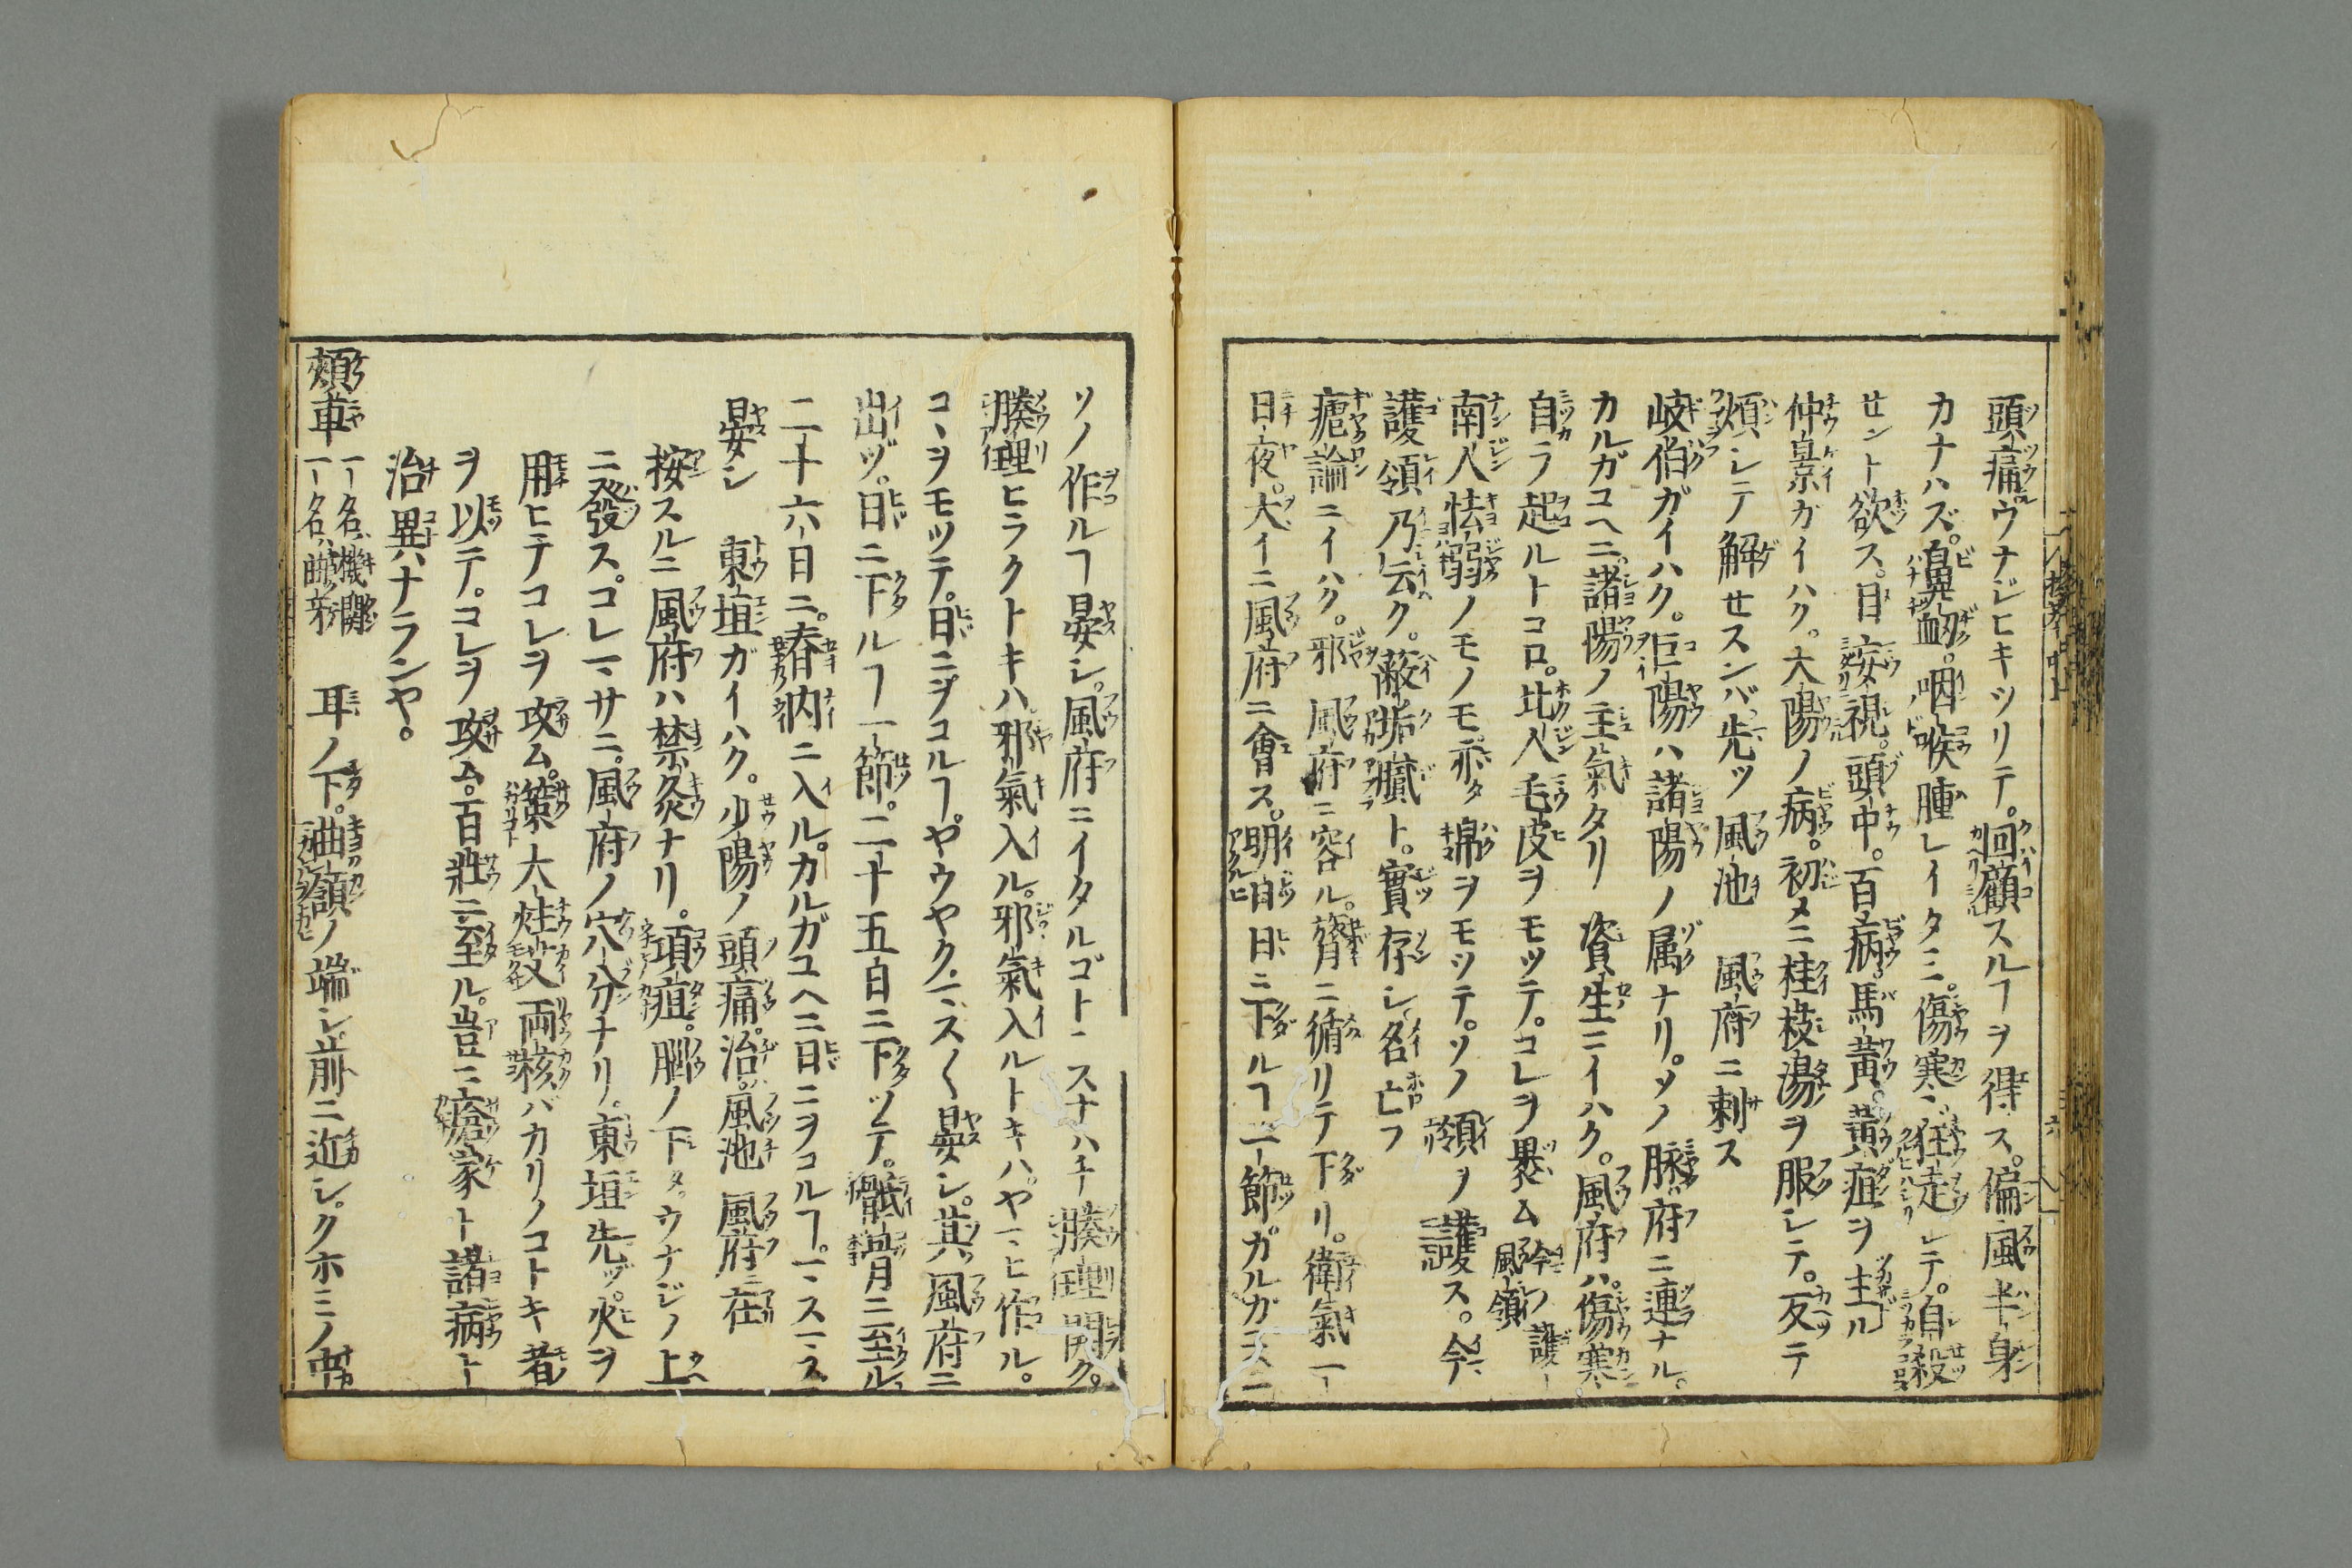 頭痛ウナジヒキツリテ。回顧スルヿヲ得ス。偏風半身
カナハズ。鼻衂。咽喉腫レイタミ。傷寒狂走レテ。自殺
セント欲ス。目妄視。頭中百病。馬黃。黃疸ヲ主ル
仲景ガイハク。大陽ノ病。初メニ桂枝湯ヲ服レテ。反テ
煩レテ解セスンバ。先ツ風池 風府ニ刺ス
岐伯ガイハク。巨陽ハ諸陽ノ属ナリ。ソノ脉風府ニ連ナル。
カルガユヘニ。諸陽ノ主氣タリ 資生ニイハク。風府ハ。傷寒
自ラ起ルトコロ。北人毛皮ヲモツテ。コレヲ裹ム今ノ護風領
南人怯弱ノモノモ。亦タ綿ヲモツテ。ソノ領ヲ護ス。今
護領乃云ク。蔽垢膩ト。實存レ名亡フ
瘧論ニイハク。邪風府ニ容ル。膂ニ循リテ下リ。衛氣一
日夜。大イニ風府ニ會ス。明日日ニ下ルヿ一節。カルガユヘニ
ソノ作ルヿ晏シ。風府ニイタルゴトニスナハチ腠理開ク。
腠理ヒラクトキハ邪氣入ル。邪氣入ルトキハ。ヤマヒ作ル。
コヽヲモツテ。日ニヲコルヿ。ヤウヤクマス〱晏シ。其風府ニ
出ヅ。日ニ下ルヿ一節。二十五日ニ下ツテ。骶骨ニ至ル
二十六日ニ。脊内ニ入ル。カルガユヘニ日ニヲコルヿ。マスマス
晏シ 東垣ガイハク。少陽ノ頭痛。治。風池 風府ニ在
按スルニ風府ハ禁灸ナリ。項疽。腦ノ下タウナジノ上
ニ發ス。コレマサニ。風府ノ穴分ナリ。東垣先ヅ。火ヲ
用ヒテコレヲ攻ム。策大炷艾両核バカリノコトキ者
ヲ以テ。コレヲ攻ム。百壯ニ至ル。豈ニ瘡家ト諸病ト
治異ナランヤ。
頬車 一名ハ機關 一名ハ曲牙 耳ノ下。曲頷ノ端レ。前ニ近レ。クホミノ中